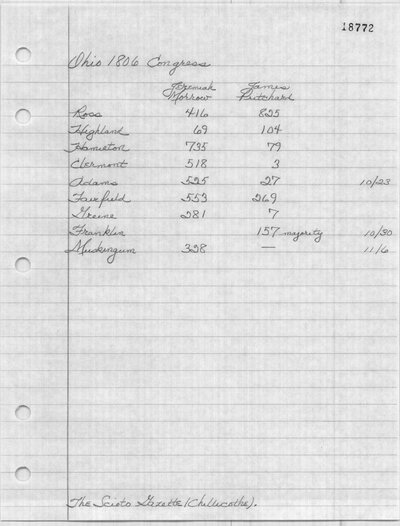 18772
Ohio 1806 Congress
Jeremiah James
Morrow Pritchard
Ross 416 825
Highland 69 104
Hamilton 735 79
Clermont 518 3
Adams 525 27 10/23
Fairfield 553 269
Greene 281 7
Franklin 157 majority 10/30
Muskingum 328 — 11/6
The Scioto Gazette (Chillicothe).